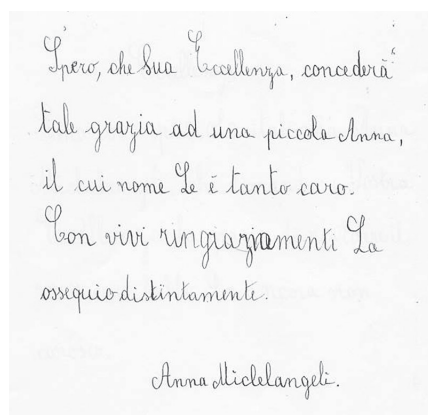 Spero, che Sua Eccellenza, concederà
tale grazia ad una piccola Anna,
il cui nome Le è tanto caro.
Con vivi ringiaziamenti La
ossequio distintamente.
Anna Miclelangeli.